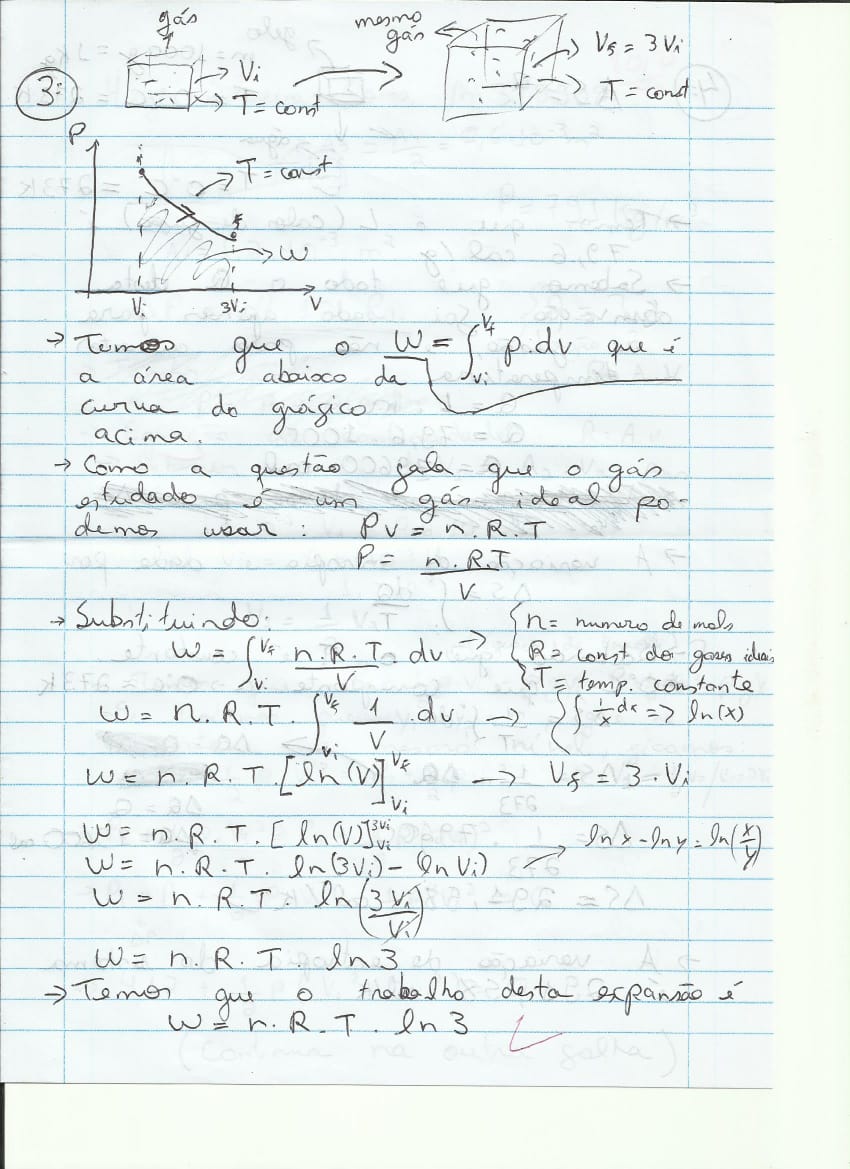 gás
mesmo
gás
3:
Vi
T = const
Vf = 3Vi
T = const
P
i
T = const
f
W
Vi
3Vi
V
→ Temos que o W = ∫_Vi^Vf p.dv que é
a área abaixo da
curva do gráfico
acima.
→ Como a questão fala que o gás
estudado é um gás ideal po-
demos usar: PV = n.R.T
P = n.R.T / V
→ Substituindo:
W = ∫_Vi^Vf n.R.T. / V dv → { n = numero de mols
R = const dos gases ideais
T = temp. constante
W = n.R.T. ∫_Vi^Vf 1/V .dv → { ∫ 1/x dx => ln(x)
W = n.R.T.[ln(V)]_Vi^Vf → Vf = 3.Vi
W = n.R.T.[ln(V)]_Vi^3Vi
W = n.R.T. ln(3Vi) - (ln Vi) → ln x - ln y = ln(x/y)
W = n.R.T. ln(3Vi/Vi)
W = n.R.T. ln3
→ Temos que o trabalho desta expansão é
W = n.R.T. ln3